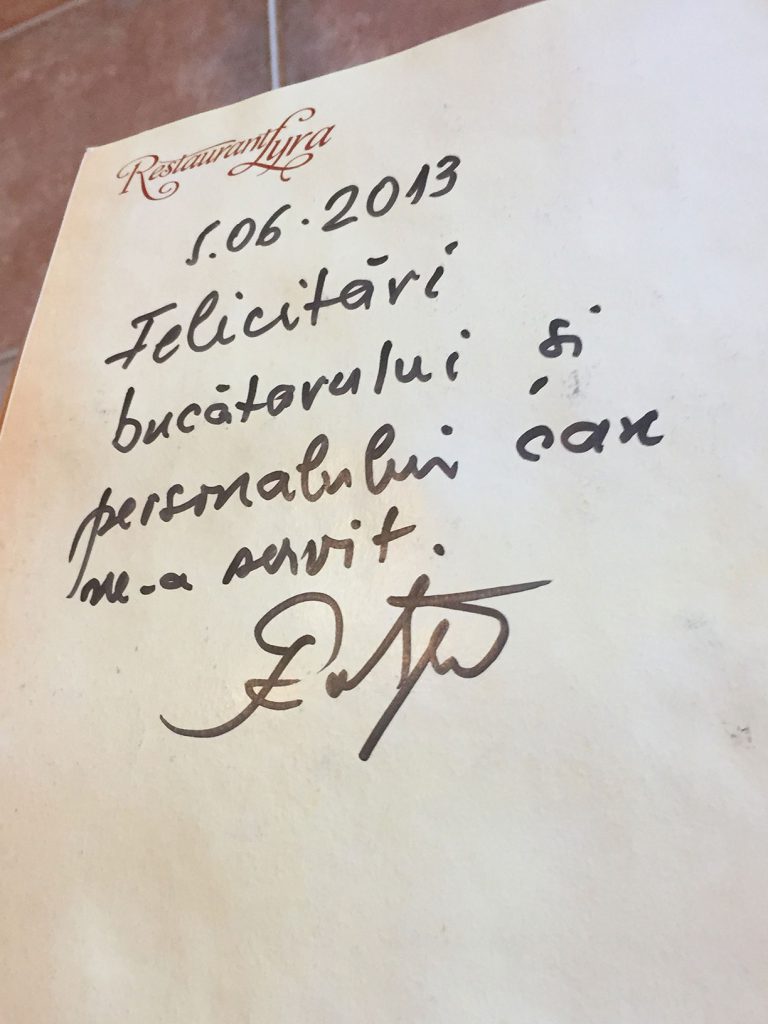 Restaurant Lyra
5.06.2013
Felicitări
bucătorului și
personalului care
ne-a servit.